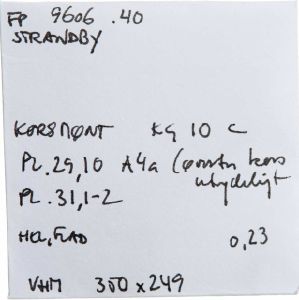 FP 9606.40
STRANDBY
KORSMØNT KG 10 C
PL. 29,10 A4a (øverste kors
utydeligt
PL. 31,1-2
HEL, FLAD 0,23
VHM 350 x 249